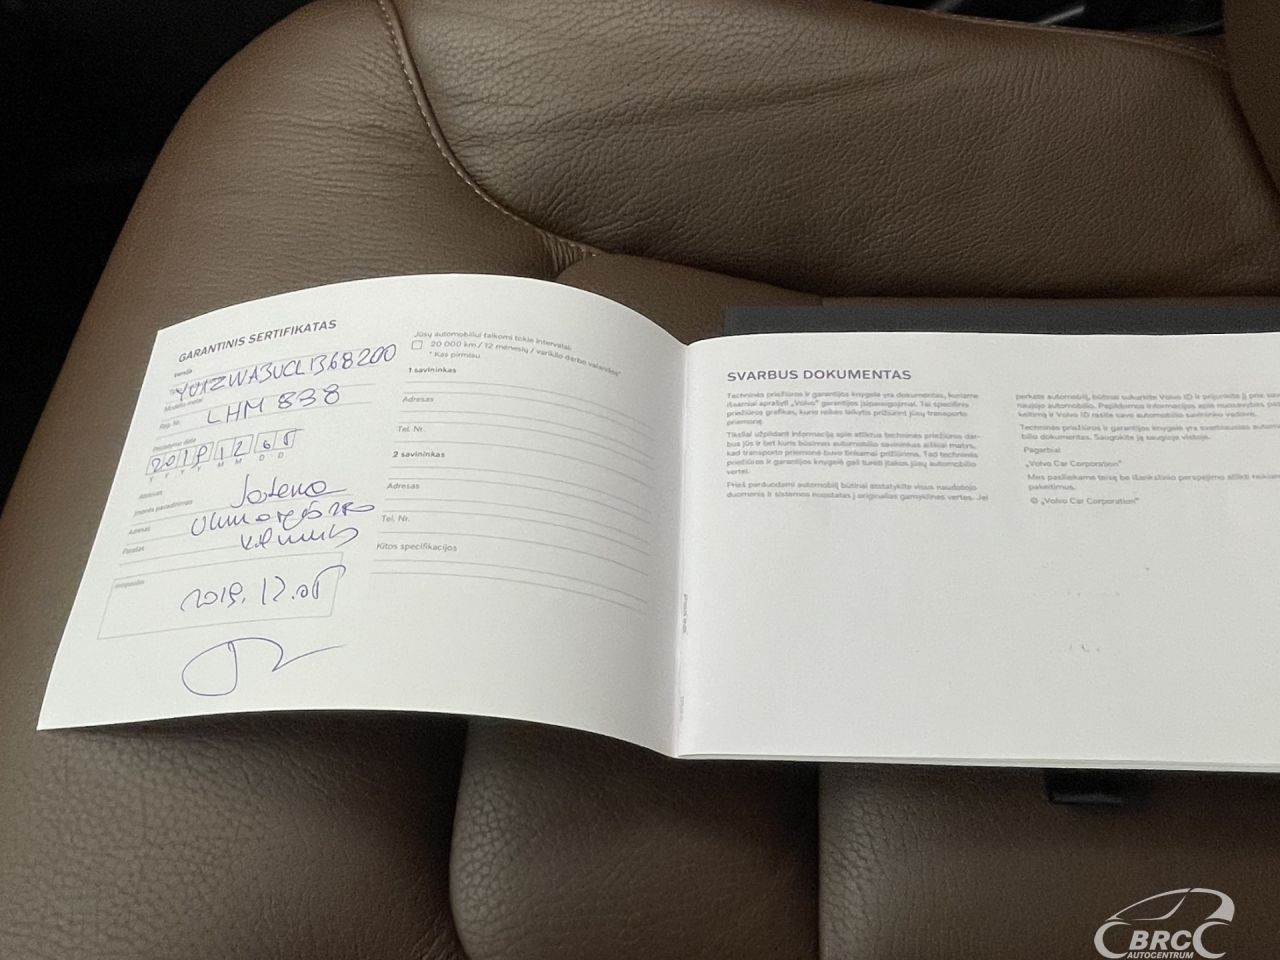 GARANTINIS SERTIFIKATAS
YV1ZWA3UCL1368200
Modelio metai
LHM 838
Reg. Nr.
Pristatymo data
2019 12 05
Y Y Y Y M M D D
Įmonės pavadinimas
Jotema
Adresas
Kaunas
Parašas
2019.12.05
Jūsų automobiliui taikomi tokie intervalai:
20 000 km / 12 mėnesių / variklio darbo valandos*
* Kas pirmiau
1 savininkas
Adresas
Tel. Nr.
2 savininkas
Adresas
Tel. Nr.
Kitos specifikacijos
SVARBUS DOKUMENTAS
Techninės priežiūros ir garantijos knygelė yra dokumentas, kuriame
išsamiai aprašyti „Volvo“ garantijos įsipareigojimai. Tai specifinis
priežiūros grafikas, kurio reikės laikytis prižiūrint jūsų transporto
priemonę.
Tiksliai užpildant informaciją apie atliktus techninės priežiūros dar-
bus jūs ir bet kuris būsimas automobilio savininkas aiškiai matys,
kad transporto priemonė buvo tinkamai prižiūrima. Tad techninės
priežiūros ir garantijos knygelė gali turėti įtakos jūsų automobilio
vertei.
Prieš parduodami automobilį būtinai atstatykite visus naudotojo
duomenis ir sistemos nuostatas į originalias gamyklines vertes. Jei
perkate automobilį, būtinai sukurkite Volvo ID ir prijunkite jį prie
naujojo automobilio. Papildomos informacijos apie nuosavybės
keitimą ir Volvo ID rasite savo automobilio savininko vadove.
Techninės priežiūros ir garantijos knygelė yra svarbiausias
bilio dokumentas. Saugokite ją saugioje vietoje.
Pagarbiai
„Volvo Car Corporation“
Mes pasiliekame teisę be išankstinio perspėjimo atlikti
pakeitimus.
© „Volvo Car Corporation“
BRC
AUTOCENTRUM